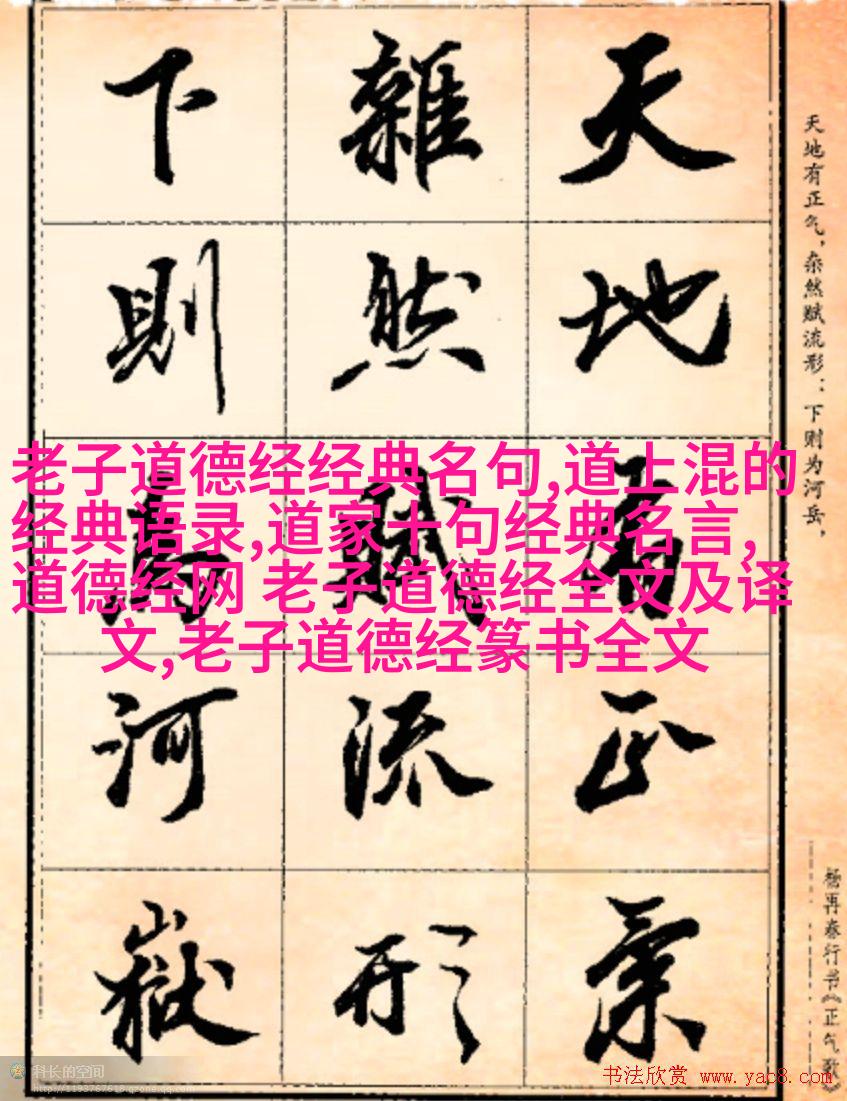 天地有正氣
雜然賦流形
下則為河嶽
天地有正气，杂然赋流形：下则为河岳，
杨再春行书《正气歌》
老子道德经经典名句,道上混的
经典语录,道家十句经典名言,
道德经网 老子道德经全文及译
文,老子道德经篆书全文
科长的空间
http://1193767618.qzone.qq.com
书法欣赏 www.yac8.com